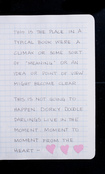 THIS IS THE PLACE IN A
TYPICAL BOOK WHERE A
CLIMAX OR SOME SORT
OF "MEANING" OR AN
IDEA OR POINT OF VIEW
MIGHT BECOME CLEAR.
THIS IS NOT GOING TO
HAPPEN. SORRY. DEAREST
DARLINGS LIVE IN THE
MOMENT, MOMENT TO
MOMENT FROM THE
HEART -